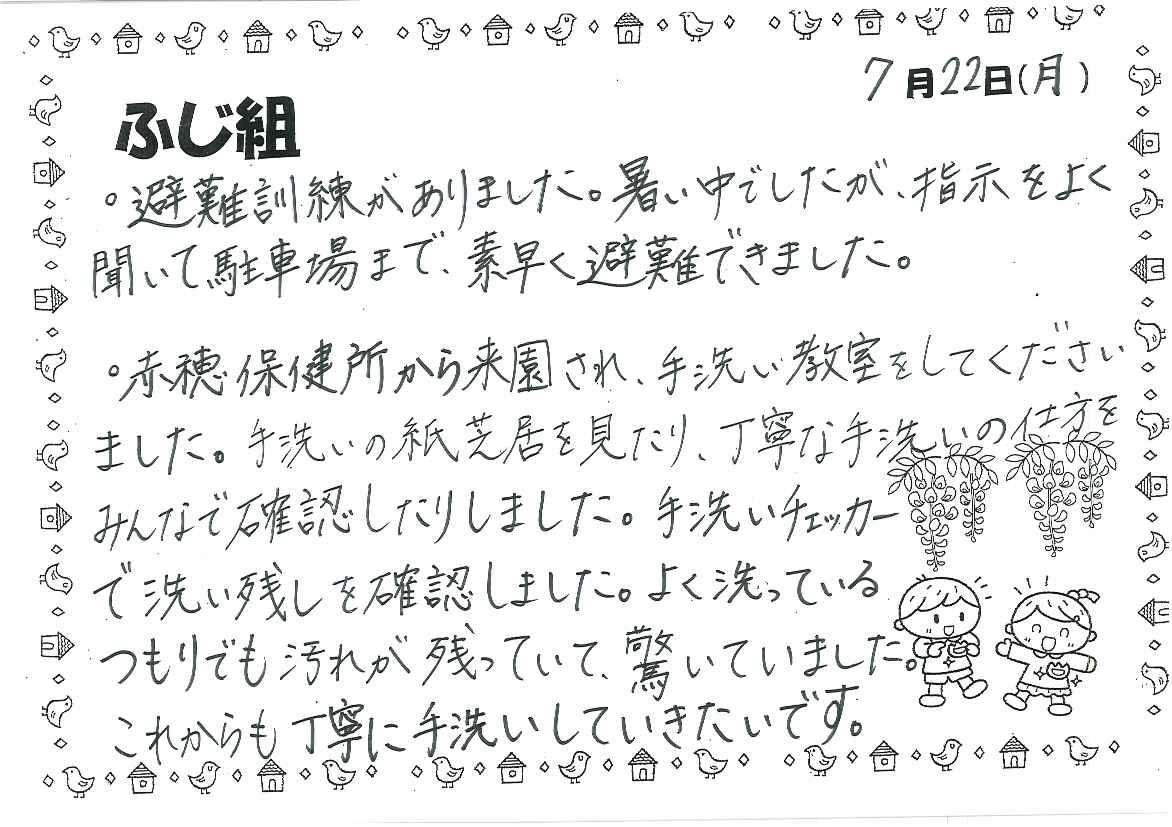 7月22日(月)
ふじ組
。避難訓練がありました。暑い中でしたが、指示をよく
聞いて駐車場まで、素早く避難できました。
。赤穂保健所から来園され、手洗い教室をしてください
ました。手洗いの紙芝居を見たり、丁寧な手洗いの仕方を
みんなで確認したりしました。手洗いチェッカー
で洗い残しを確認しました。よく洗っている
つもりでも汚れが残っていて、驚いていました。
これからも丁寧に手洗いしていきたいです。